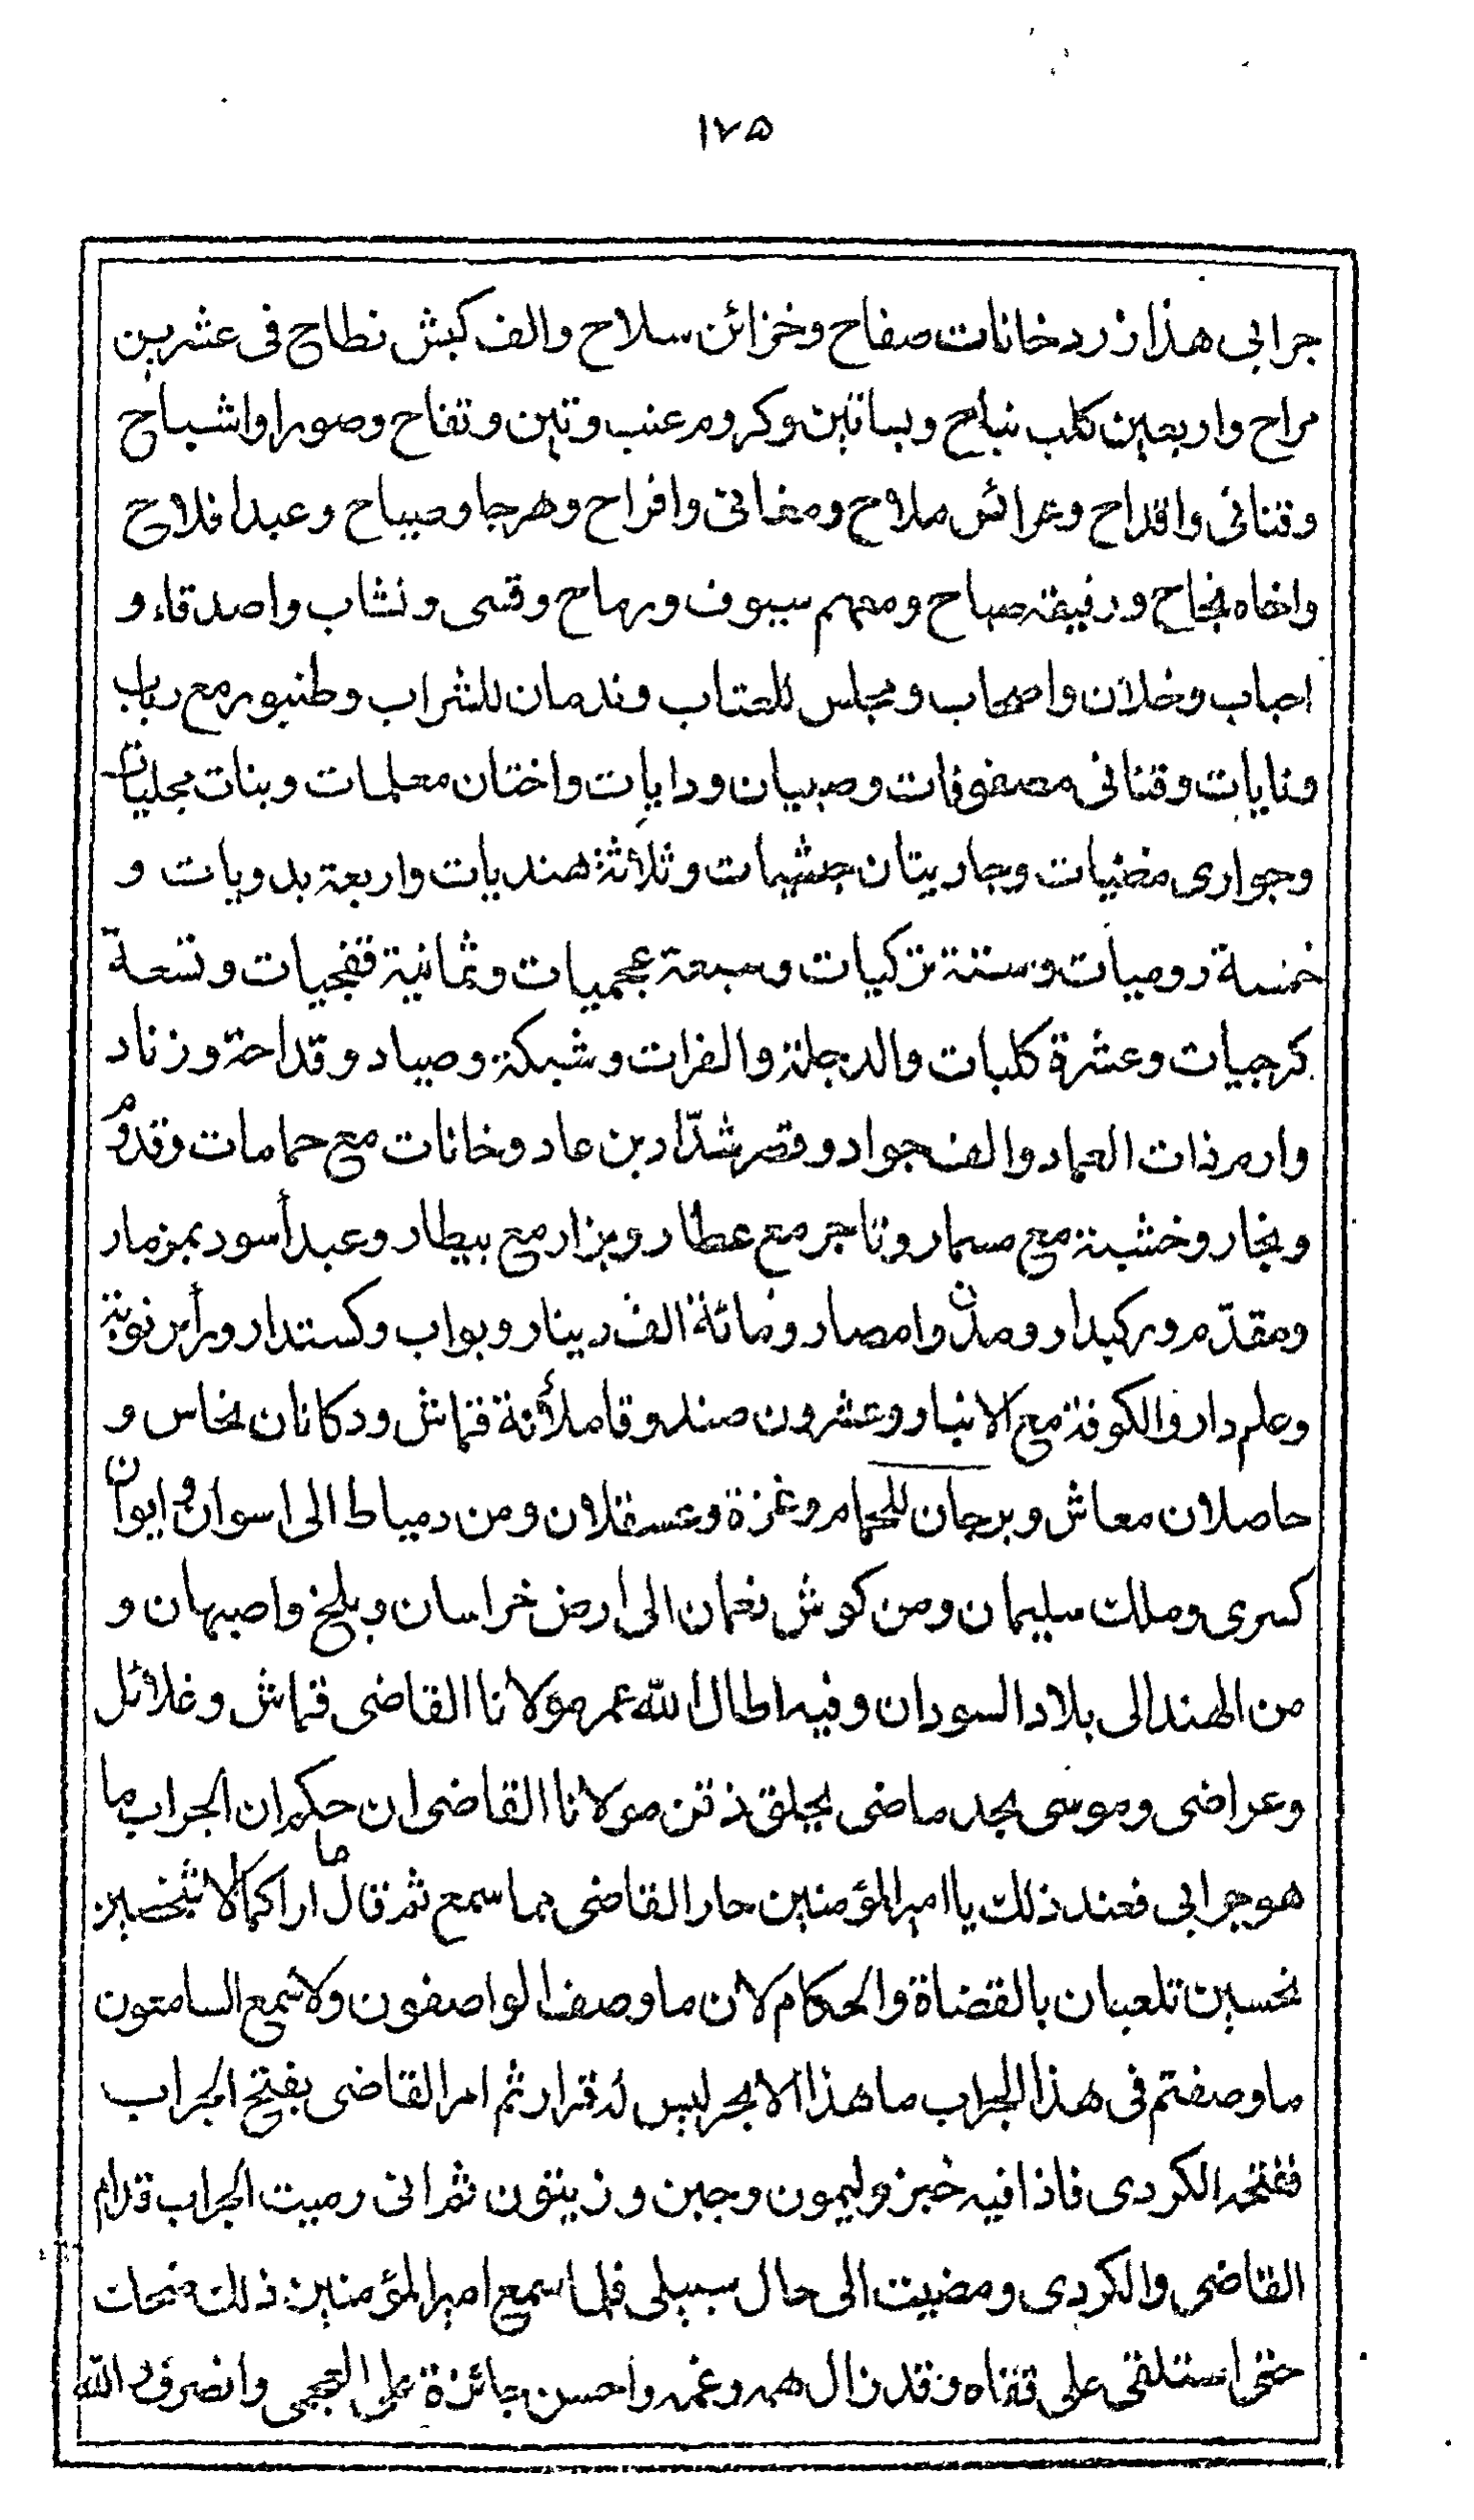 ١٢٥
جرابى هذا زردخانات صفاح وخزائن سلاح والف كبش نطاح فى عشرين
مراح واربعين كلب نباح وبساتين وكروم عنب وتين وتفاح وصورا واشباح
وقنانى واقداح وعرائس ملاح ومغانى وافراح وهرجا وصياح وعبدا فلاح
واخاه نجاح ورفيقه صباح ومعهم سيوف ورماح وقسى ونشاب واصدقاء و
احباب وخلان واصحاب ومجلس للعتاب وندمان للشراب وطنبور مع رباب
ونايات وقنانى مصفوفات وصبيان ودايات واختان معلمات وبنات مجليات
وجوارى مغنيات وجاريتان حبشيات وثلاثة هنديات واربعة بدويات و
خمسة روميات وستة تركيات وسبعة عجميات وثمانية قفجيات وتسعة
كرجيات وعشرة كلبات والدجلة والفرات وشبكة وصياد وقداحة وزناد
وارم ذات العماد والف جواد وقصر شدّاد بن عاد وخانات مع حمامات وقدوم
ونجار وخشبة مع مسمار وتاجر مع عطار وبزار مع بيطار وعبد أسود بمزمار
ومقدّم وركبدار ومدن وامصار ومائة الف دينار وبواب وكستدار ورأس نوبة
وعلم دار والكوفة مع الانبار وعشرون صندوقا ملأنة قماش ودكانان نحاس و
حاصلان معاش وبرجان للحمام وغزة وعسقلان ومن دمياط الى اسوان وايوان
كسرى وملك سليمان ومن كوش نعمان الى ارض خراسان وبلخ واصبهان و
من الهند الى بلاد السودان وفيه اطال الله عمر مولانا القاضى قماش وغلائل
وعراضى وموسى بجد ماضى يحلق ذقن مولانا القاضى ان حكم ان الجراب ما
هو جرابى فعند ذلك يا امير المؤمنين حار القاضى مما سمع ثم قال ما اراكما الا شخصين
نحسين تلعبان بالقضاة والحكام لان ما وصف الواصفون ولا سمع السامعون
ما وصفتم فى هذا الجراب ما هذا الا بحر ليس له قرار ثم امر القاضى بفتح الجراب
ففتحه الكردى فاذا فيه خبز وليمون وجبن وزيتون ثم انى رميت الجراب قدام
القاضى والكردى ومضيت الى حال سبيلى فلما سمع امير المؤمنين ذلك ضحك
حتى استلقى على قفاه وقد زال همه وغمه واحسن جائزة على العجمى وانصرف الله